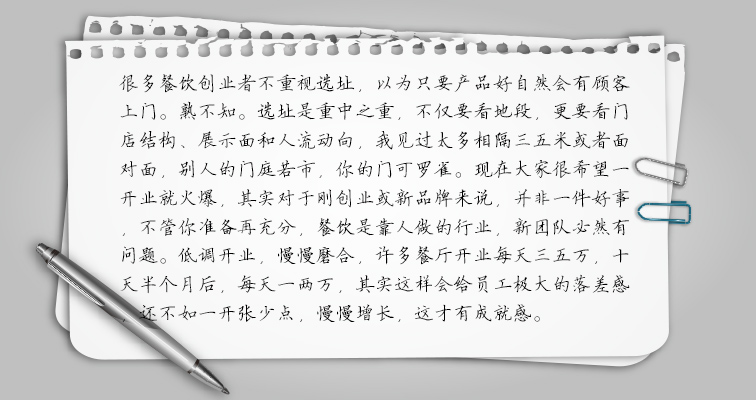 很多餐饮创业者不重视选址，以为只要产品好自然会有顾客
上门。孰不知。选址是重中之重，不仅要看地段，更要看门
店结构、展示面和人流动向，我见过太多相隔三五米或者面
对面，别人的门庭若市，你的门可罗雀。现在大家很希望一
开业就火爆，其实对于刚创业或新品牌来说，并非一件好事
，不管你准备再充分，餐饮是靠人做的行业，新团队必然有
问题。低调开业，慢慢磨合，许多餐厅开业每天三五万，十
天半个月后，每天一两万，其实这样会给员工极大的落差感
还不如一开张少点，慢慢增长，这才有成就感。